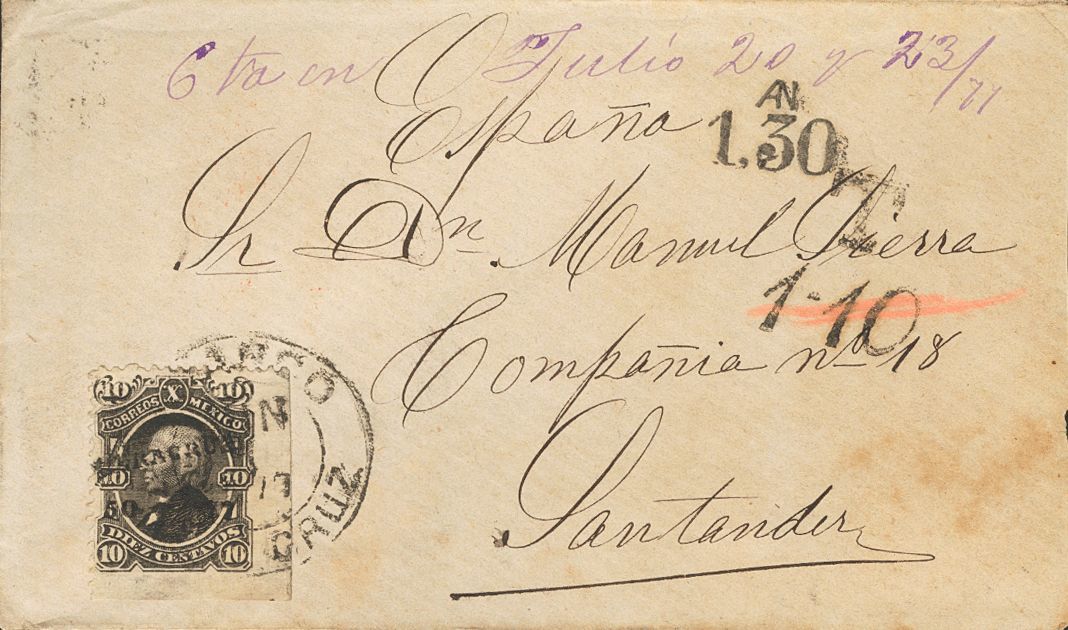 6 ta en Julio 20 y 23/77
España
AN.
1,30
Sr Dn Manuel Sierra
1-10
Compañia no 18
Santander
CRUZ
10 X 10
CORREOS MEXICO
10 10
50 77
DIEZ CENTAVOS
10 10